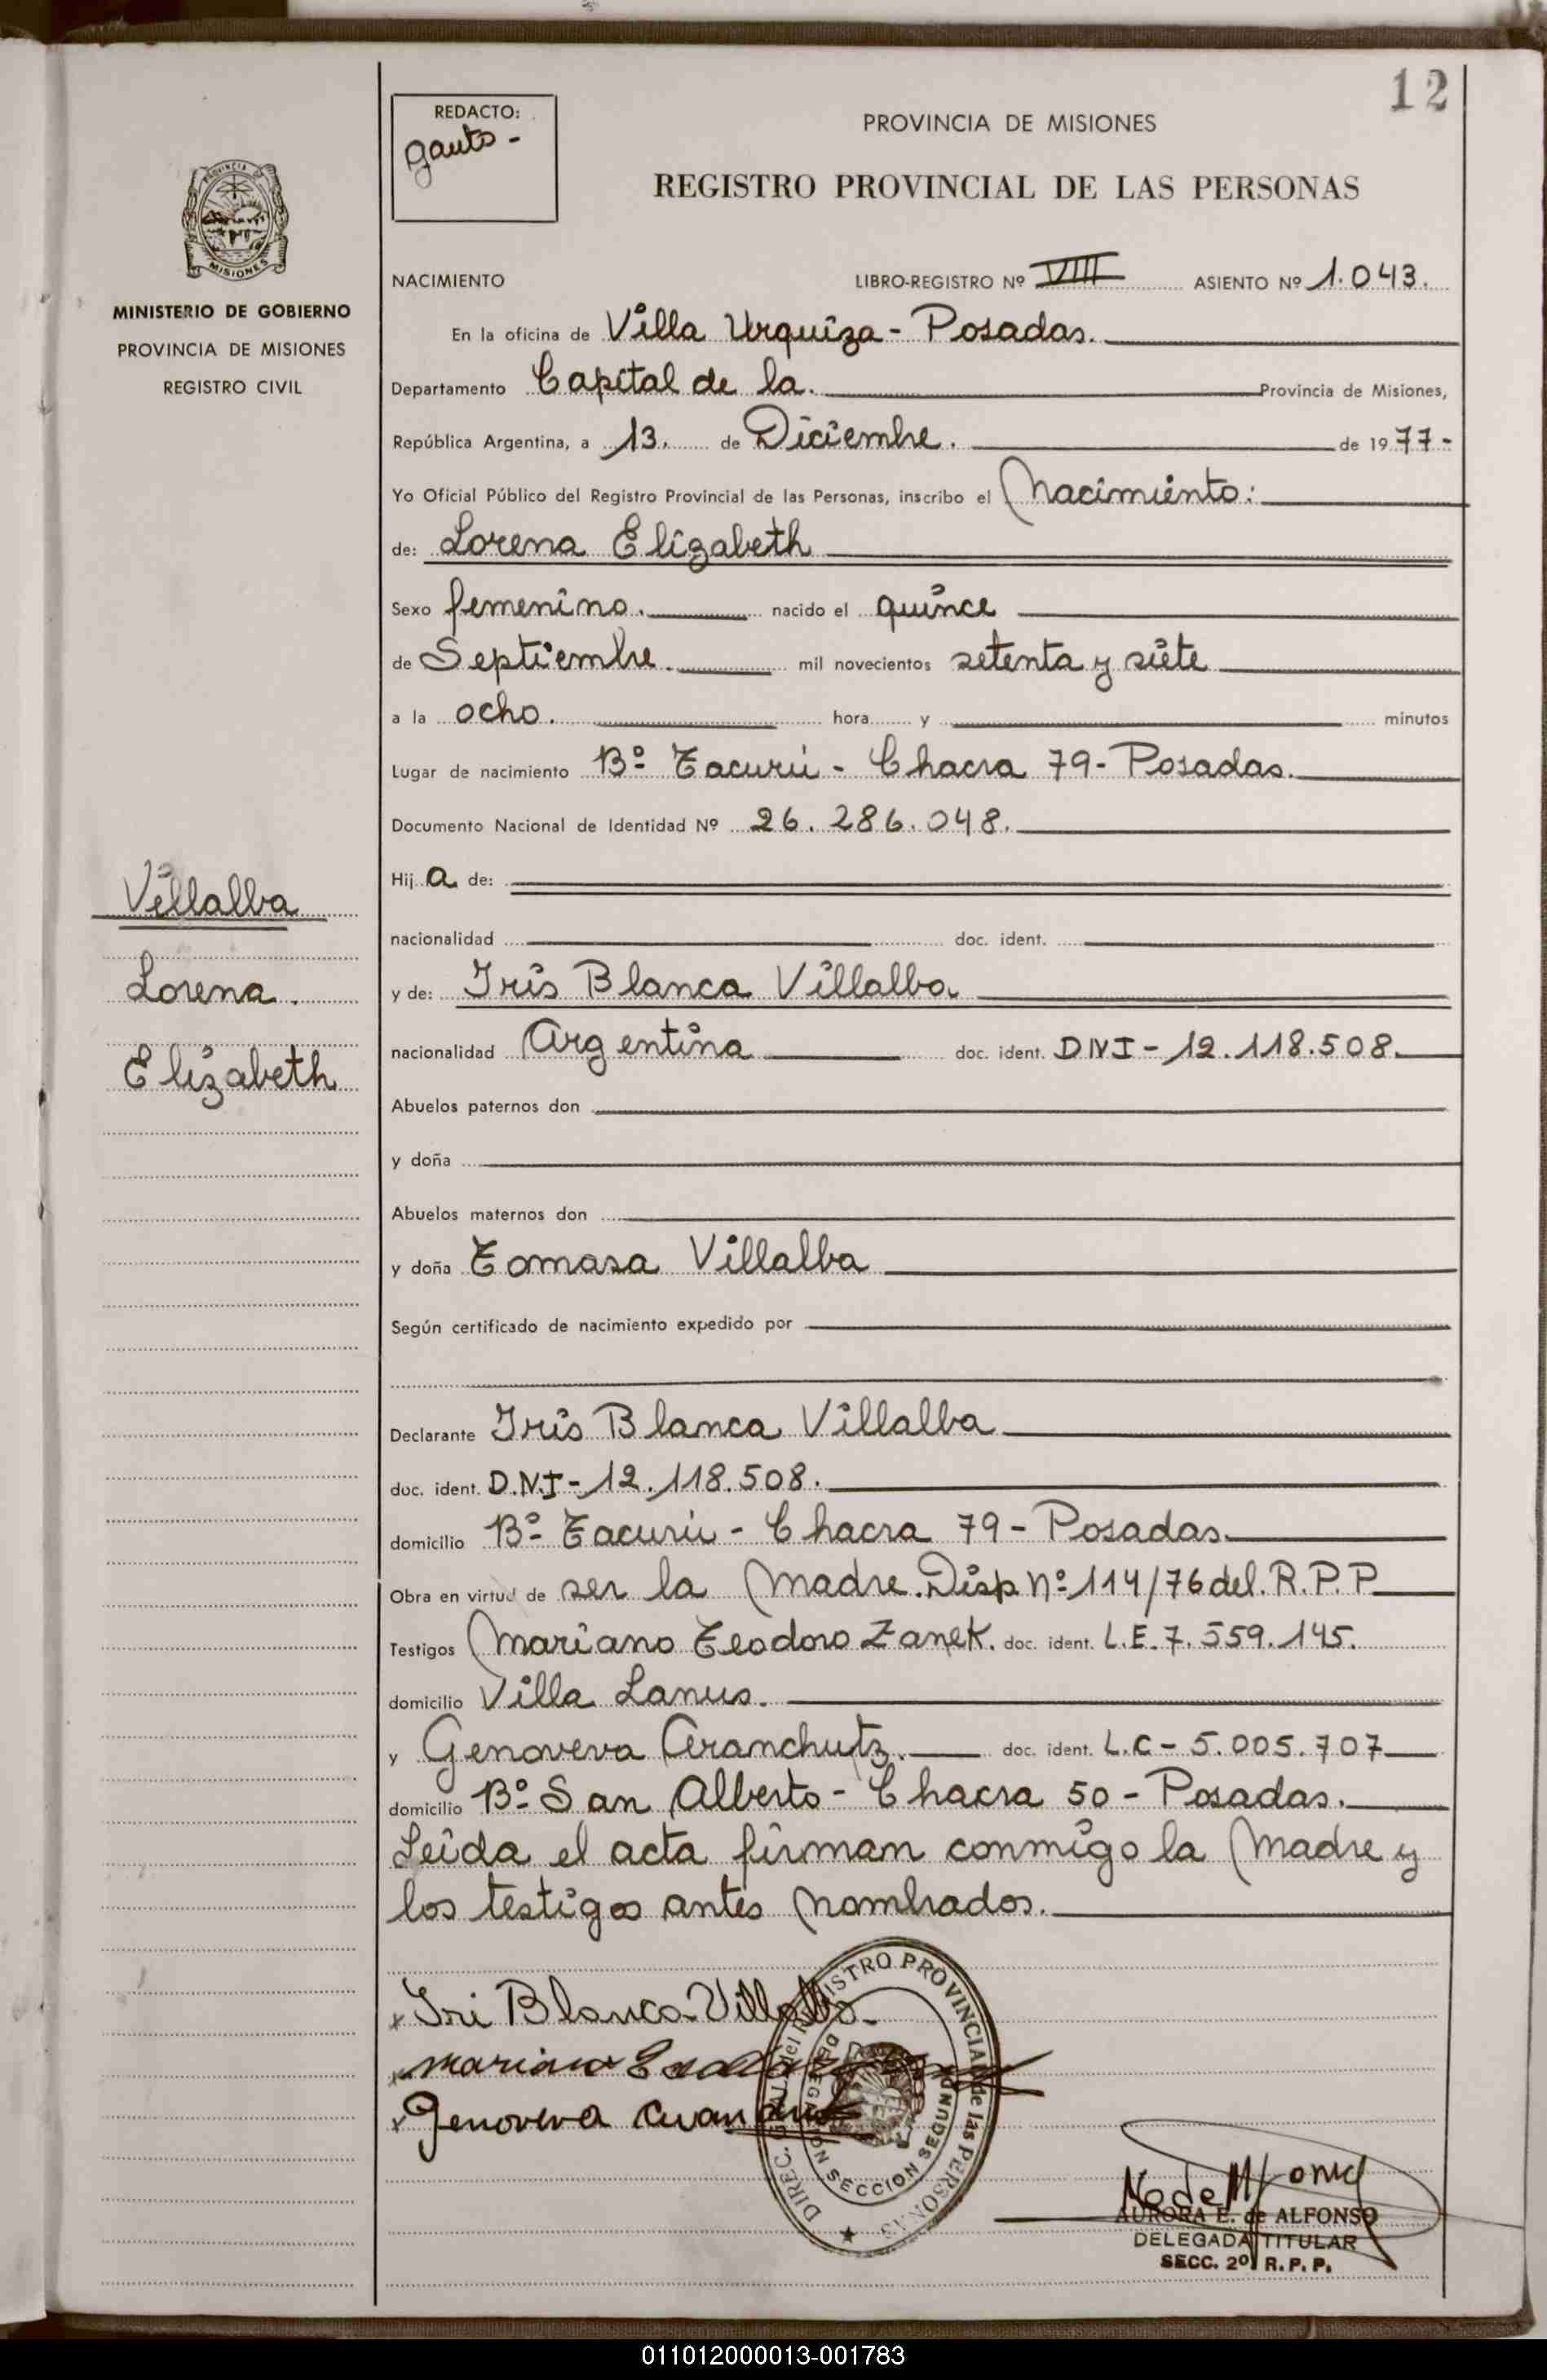 12
REDACTO:
Gauto -
PROVINCIA DE MISIONES
REGISTRO PROVINCIAL DE LAS PERSONAS
PROVINCIA DE
MISIONES
MINISTERIO DE GOBIERNO
PROVINCIA DE MISIONES
REGISTRO CIVIL
NACIMIENTO LIBRO-REGISTRO Nº VIII ASIENTO Nº 1.043.
En la oficina de Villa Urquiza - Posadas.
Departamento Capital de la. Provincia de Misiones,
República Argentina, a 13. de Diciembre. de 1977-
Yo Oficial Público del Registro Provincial de las Personas, inscribo el Nacimiento:
de: Lorena Elizabeth
Sexo femenino. nacido el quince
de Septiembre. mil novecientos setenta y siete
a la ocho. hora y minutos
Lugar de nacimiento Bº Tacurú - Chacra 79 - Posadas.
Documento Nacional de Identidad Nº 26.286.048.
Hija de:
Villalba
Lorena.
Elizabeth
nacionalidad doc. ident.
y de: Iris Blanca Villalba
nacionalidad Argentina doc. ident. DNI - 12.118.508.
Abuelos paternos don
y doña
Abuelos maternos don
y doña Tomasa Villalba
Según certificado de nacimiento expedido por
Declarante Iris Blanca Villalba
doc. ident. D.N.I - 12.118.508.
domicilio Bº Tacurú - Chacra 79 - Posadas.
Obra en virtud de ser la Madre. Disp. Nº 114/76 del. R.P.P
Testigos Mariano Teodoro Zanek. doc. ident. L.E. 7.559.145.
domicilio Villa Lanus.
y Genoveva Aranchutz. doc. ident. L.C - 5.005.707
domicilio Bº San Alberto - Chacra 50 - Posadas.
Leida el acta firman conmigo la Madre y
los testigos antes nombrados.
x Iri Blanca Villalba
x Mariano
x Genoveva
DIREC. GRAL. del REGISTRO PROVINCIAL de las PERSONAS
DELEGACION SECCION SEGUNDA
AURORA E. de ALFONSO
DELEGADA TITULAR
SECC. 2º R.P.P.
011012000013-001783